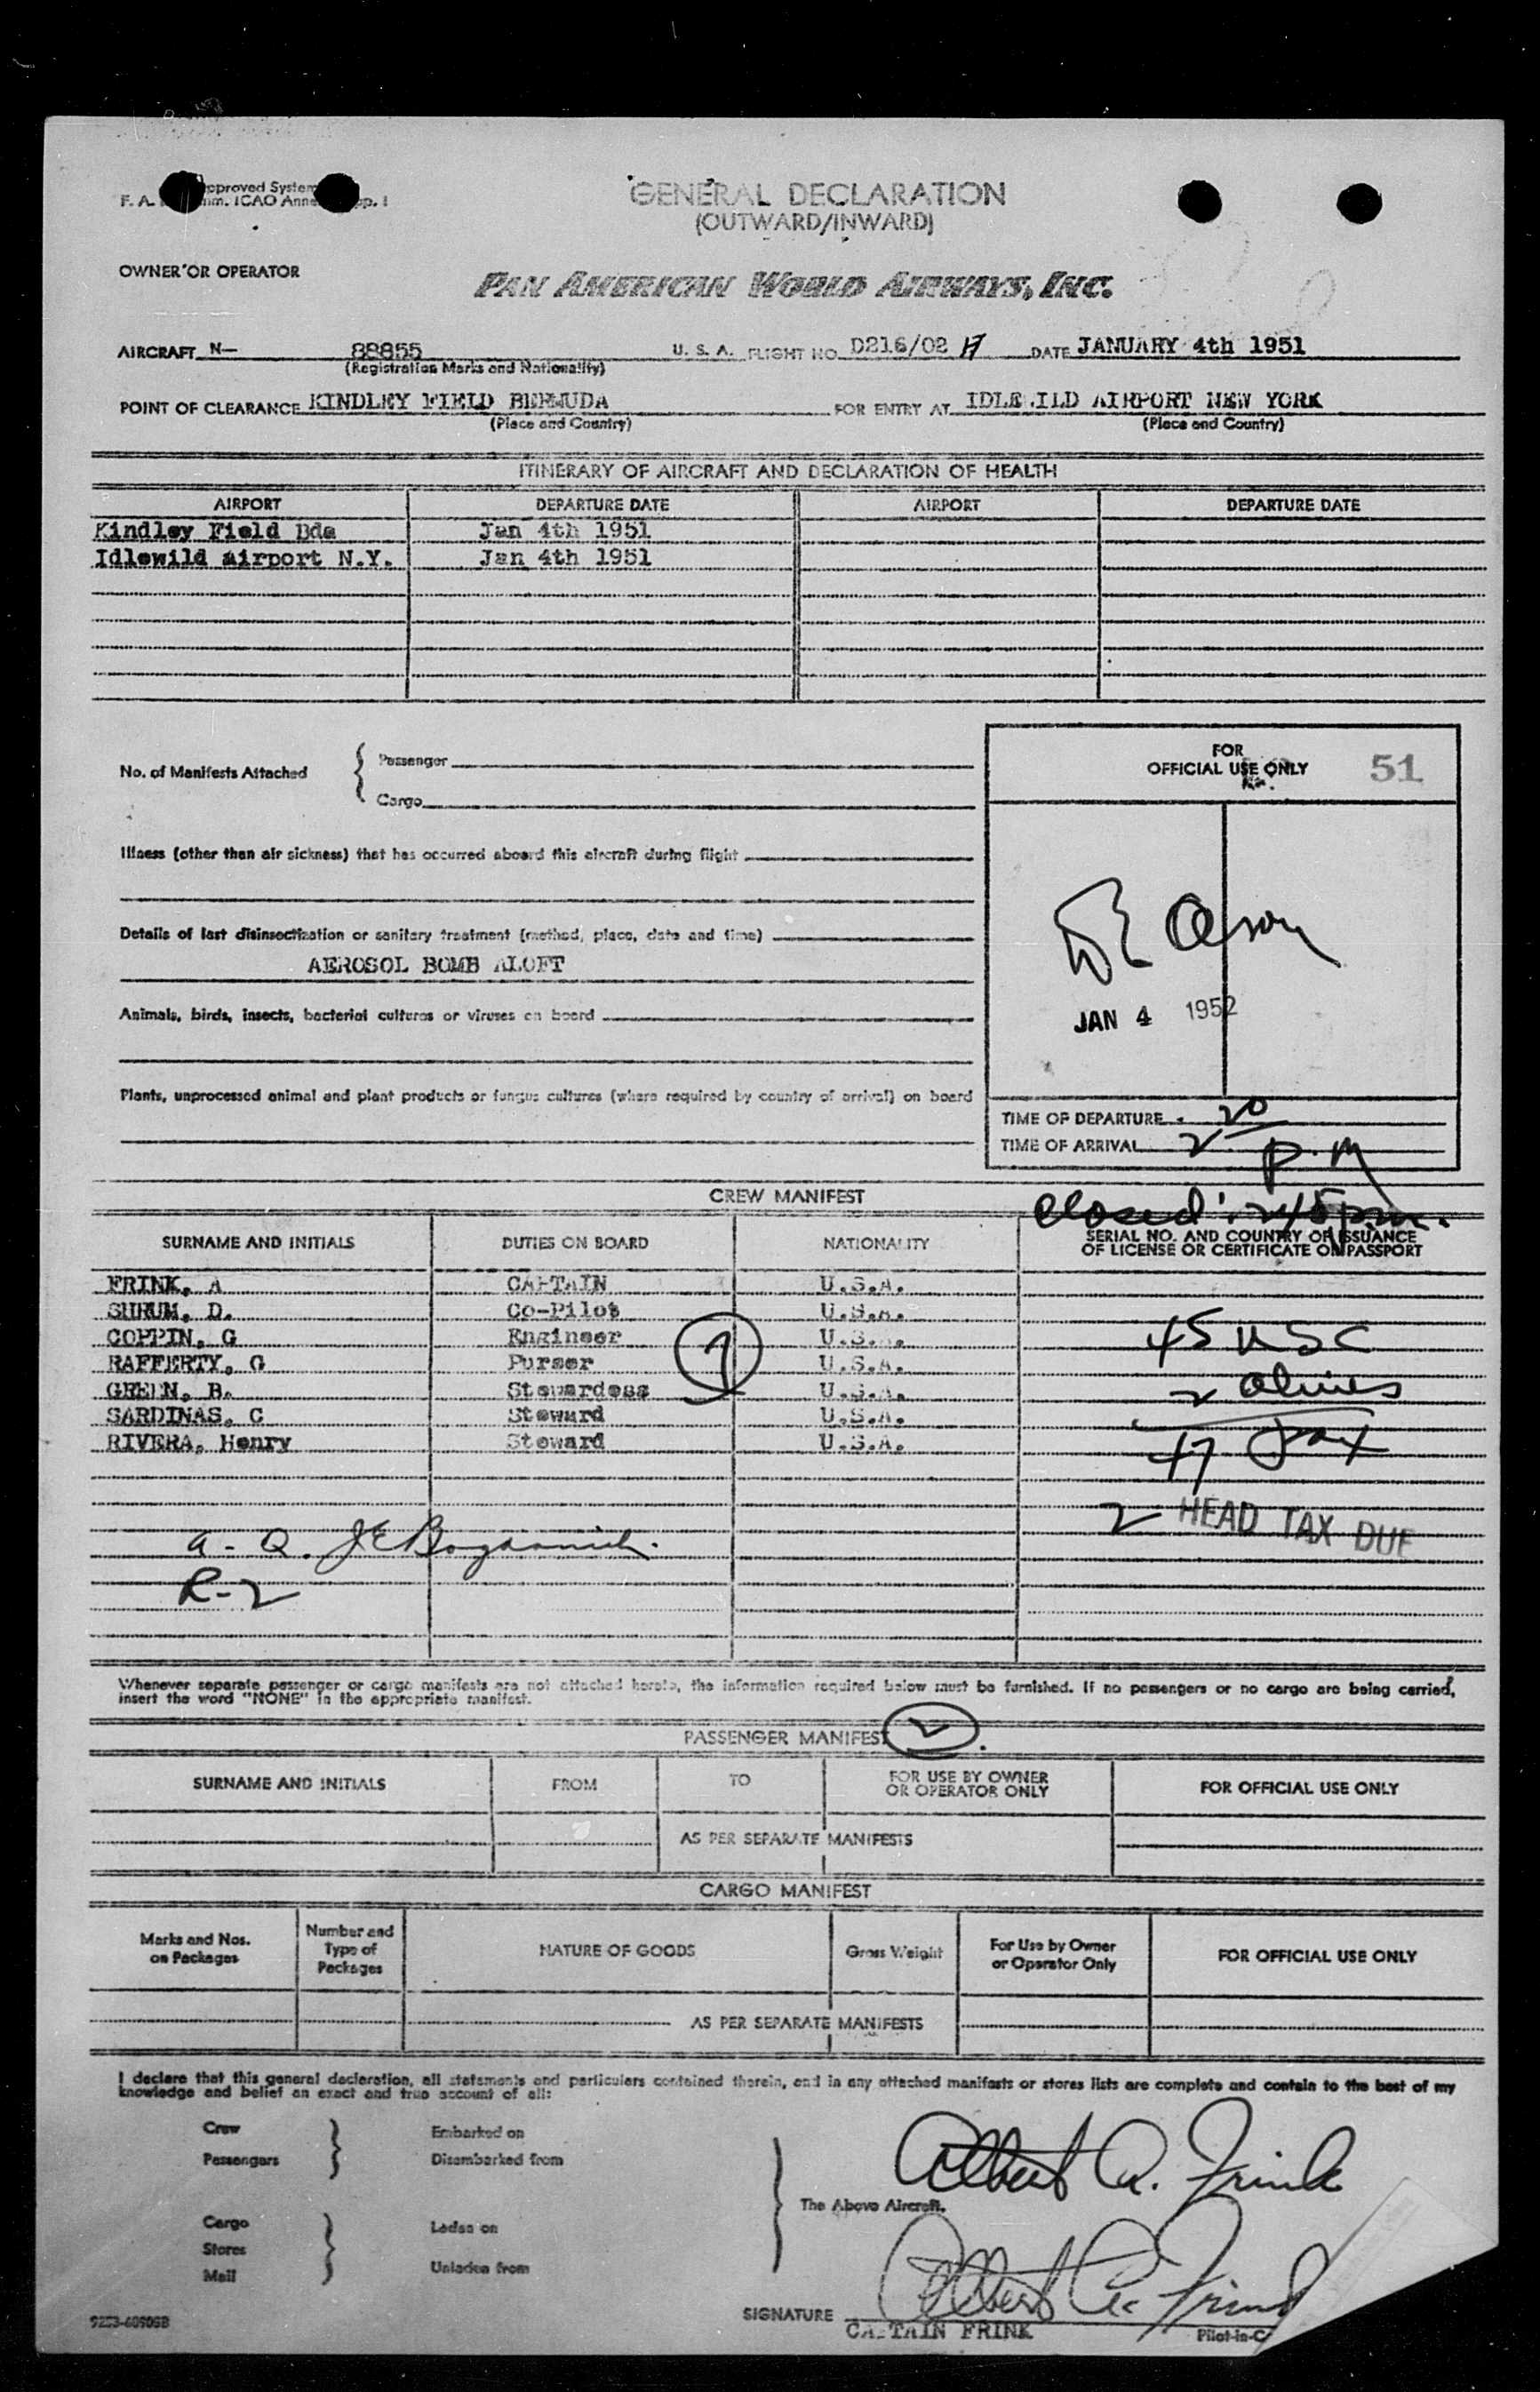 GENERAL DECLARATION
(OUTWARD/INWARD)
OWNER OR OPERATOR
PAN AMERICAN WORLD AIRWAYS, INC.
AIRCRAFT N— 88855 U. S. A. FLIGHT NO. D216/02 DATE JANUARY 4th 1951
(Registration Marks and Nationality)
POINT OF CLEARANCE KINDLEY FIELD BERMUDA FOR ENTRY AT IDLE ILD AIRPORT NEW YORK
(Place and Country) (Place and Country)
ITINERARY OF AIRCRAFT AND DECLARATION OF HEALTH
AIRPORT DEPARTURE DATE AIRPORT DEPARTURE DATE
Kindley Field Bda Jan 4th 1951
Idlewild Airport N.Y. Jan 4th 1951
FOR
OFFICIAL USE ONLY 51
No. of Manifests Attached { Passenger
Cargo
Illness (other than air sickness) that has occurred aboard this aircraft during flight
Details of last disinsectization or sanitary treatment (method, place, date and time)
AEROSOL BOMB ALOFT
Olson
JAN 4 1952
Animals, birds, insects, bacterial cultures or viruses on board
Plants, unprocessed animal and plant products or fungus cultures (where required by country of arrival) on board
TIME OF DEPARTURE
TIME OF ARRIVAL 2 20 P.M
CREW MANIFEST
closed 245 pm.
SURNAME AND INITIALS DUTIES ON BOARD NATIONALITY SERIAL NO. AND COUNTRY OF ISSUANCE
OF LICENSE OR CERTIFICATE OR PASSPORT
FRINK, A CAPTAIN U.S.A.
SHRUM, D. Co-Pilot U.S.A.
COPPIN, G Engineer U.S.A. 45 USC
RAFFERTY, G Purser U.S.A.
GREEN, B. Stewardess U.S.A. 2 aliens
SARDINAS, C Steward U.S.A.
RIVERA, Henry Steward U.S.A. 47 Pax
7
2 HEAD TAX DUE
a - Q.
R-2
Whenever separate passenger or cargo manifests are not attached hereto, the information required below must be furnished. If no passengers or no cargo are being carried,
insert the word "NONE" in the appropriate manifest.
PASSENGER MANIFEST 2
SURNAME AND INITIALS FROM TO FOR USE BY OWNER
OR OPERATOR ONLY FOR OFFICIAL USE ONLY
AS PER SEPARATE MANIFESTS
CARGO MANIFEST
Marks and Nos.
on Packages Number and
Type of
Packages NATURE OF GOODS Gross Weight For Use by Owner
or Operator Only FOR OFFICIAL USE ONLY
AS PER SEPARATE MANIFESTS
I declare that this general declaration, all statements and particulars contained therein, and in any attached manifests or stores lists are complete and contain to the best of my
knowledge and belief an exact and true account of all:
Crew Embarked on
Passengers Disembarked from
Albert A. Frink
The Above Aircraft.
Cargo Laden on
Stores
Mail Unladen from
Albert A. Frink
SIGNATURE
CAPTAIN FRINK Pilot-in-C